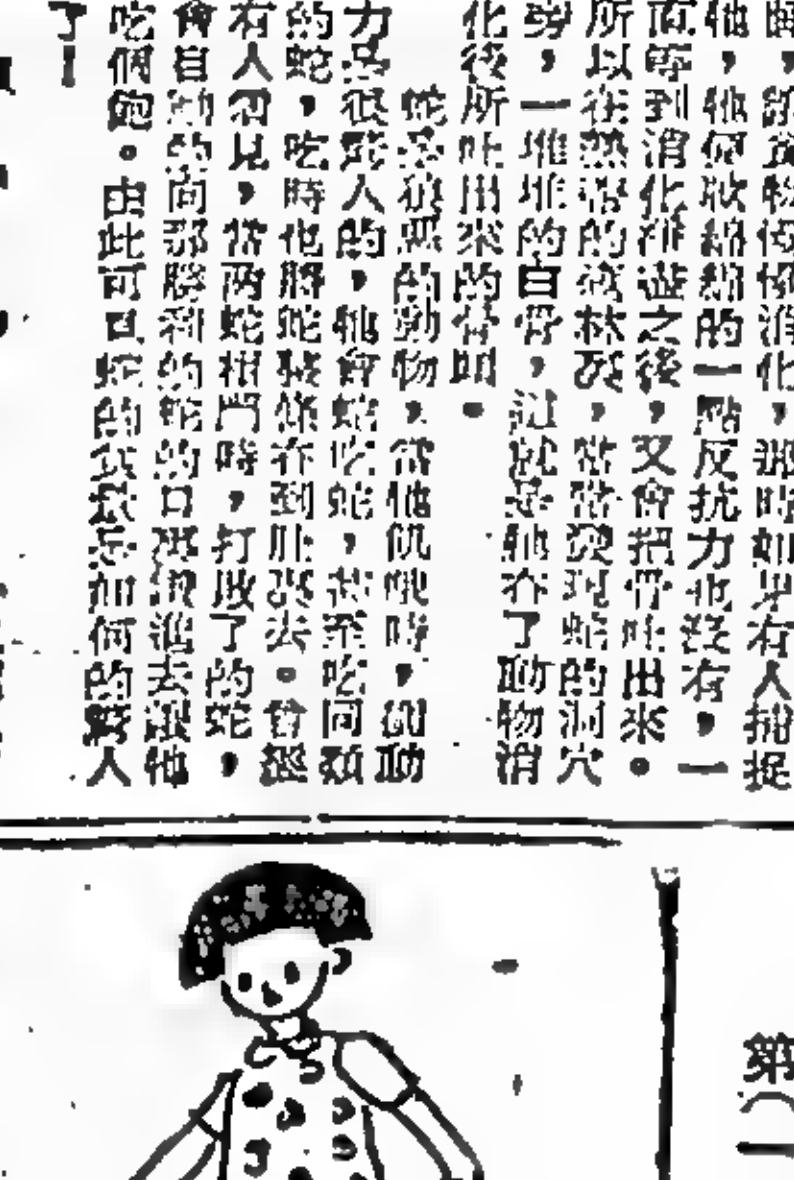 時，讓食物慢慢消化，那時如果有人捕捉
牠，牠便軟綿綿的一點反抗力也沒有，一
直等到消化殆盡之後，又會把骨吐出來。
所以在熱帶的森林裏，常常發現蛇的洞穴
旁，一堆堆的白骨，這就是牠吞了動物消
化後所吐出來的骨頭。
蛇是狼惡的動物，當他飢餓時，御動
力是很驚人的，牠會蛇吃蛇，甚至吃同類
的蛇，吃時也將蛇整條吞到肚裏去。曾經
有人看見，當两蛇相鬥時，打敗了的蛇，
會自動的向那勝利的蛇的口裏滑進去讓他
吃個飽。由此可見蛇的食量是如何的驚人
了！
第（一